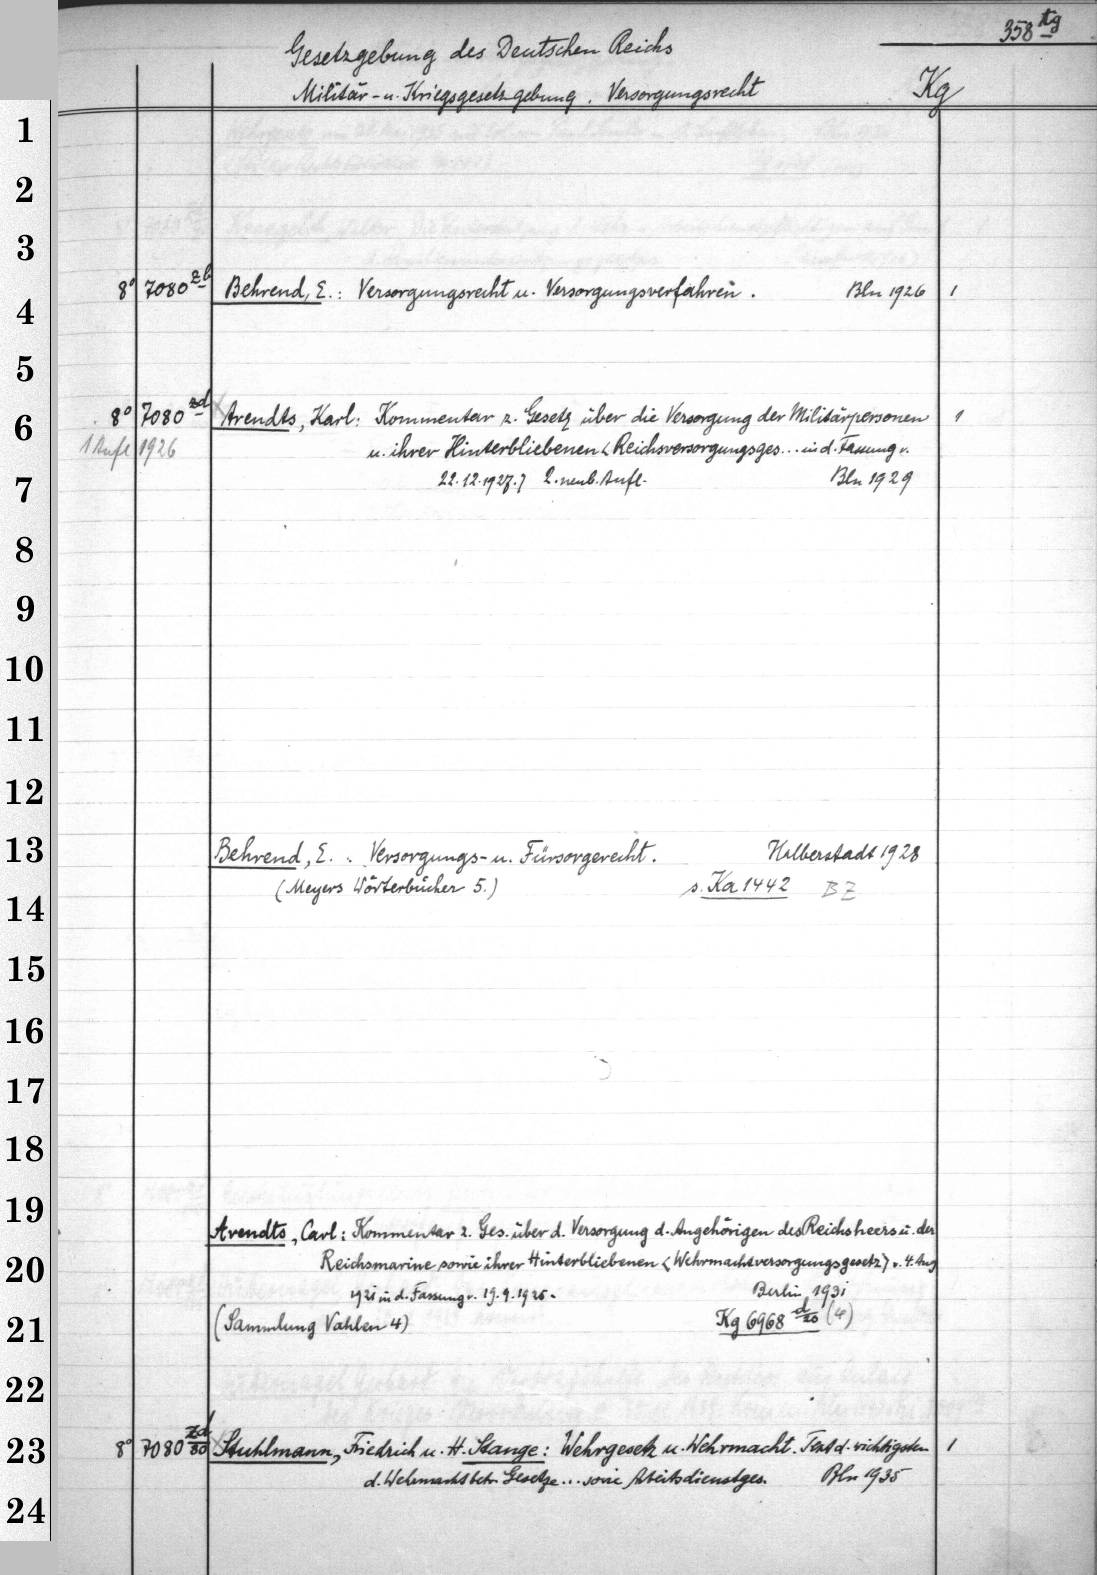 358 tg
Gesetzgebung des Deutschen Reichs
Militär- u. Kriegsgesetzgebung. Versorgungsrecht Kg
1
2
3
8° 7080 zb Behrend, E.: Versorgungsrecht u. Versorgungsverfahren. Bln 1926 1
4
5
6 8° 7080 zd Arendts, Karl: Kommentar z. Gesetz über die Versorgung der Militärpersonen 1
1 Aufl 1926 u. ihrer Hinterbliebenen < Reichsversorgungsges... in d. Fassung v.
7 22.12.1927.> 2. neub. Aufl. Bln 1929
8
9
10
11
12
13 Behrend, E. : Versorgungs- u. Fürsorgerecht. Halberstadt 1928
(Meyers Wörterbücher 5.) s. Ka 1442 BZ
14
15
16
17
18
19
Arendts, Carl: Kommentar z. Ges. über d. Versorgung d. Angehörigen des Reichsheers u. der
20 Reichsmarine sowie ihrer Hinterbliebenen < Wehrmachtversorgungsgesetz> v. 4. Aug
1921 in d. Fassung v. 19.9.1925. Berlin 1931
21 (Sammlung Vahlen 4) Kg 6968 d/20 (4)
22
23 8° 7080 zd/80 Stuhlmann, Friedrich u. H. Stange: Wehrgesetz u. Wehrmacht. Text d. wichtigsten 1
d. Wehrmacht betr. Gesetze... sowie Arbeitsdienstges. Bln 1935
24